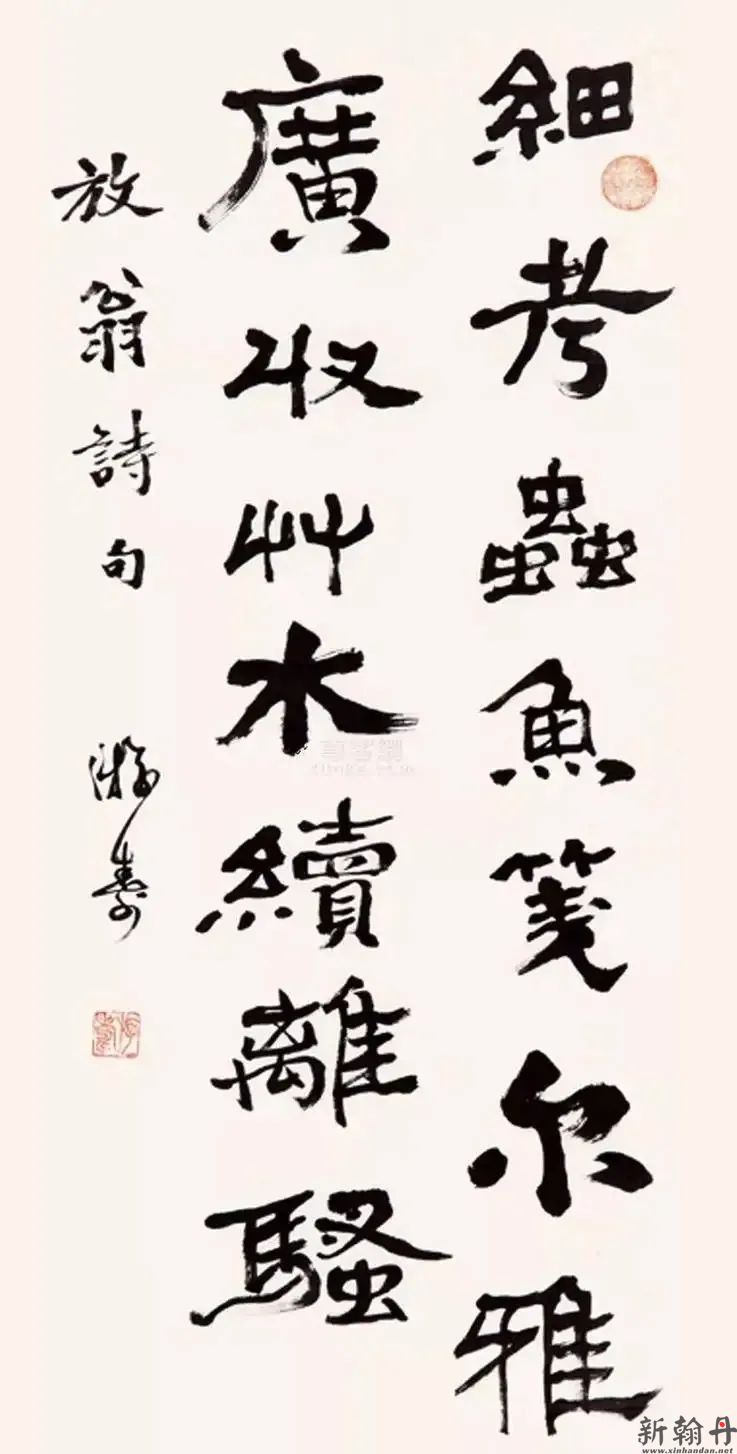 細考蟲魚箋尔雅
廣收艸木續離騷
放翁詩句
游壽
新翰丹
www.xinhandan.net